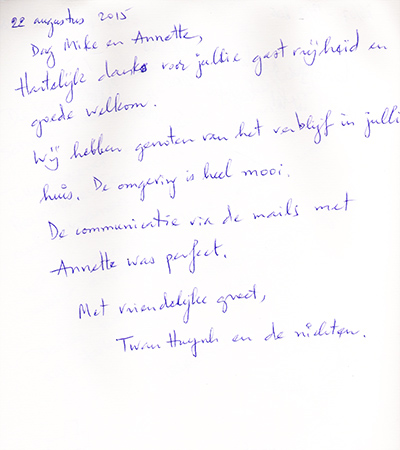 22 augustus 2015
Dag Mike en Annette,
Hartelijk dank voor jullie gastvrijheid en
goede welkom.
Wij hebben genoten van het verblijf in julli
huis. De omgeving is heel mooi.
De communicatie via de mails met
Annette was perfect.
Met vriendelijke groet,
Twan Huynh en de nichten.